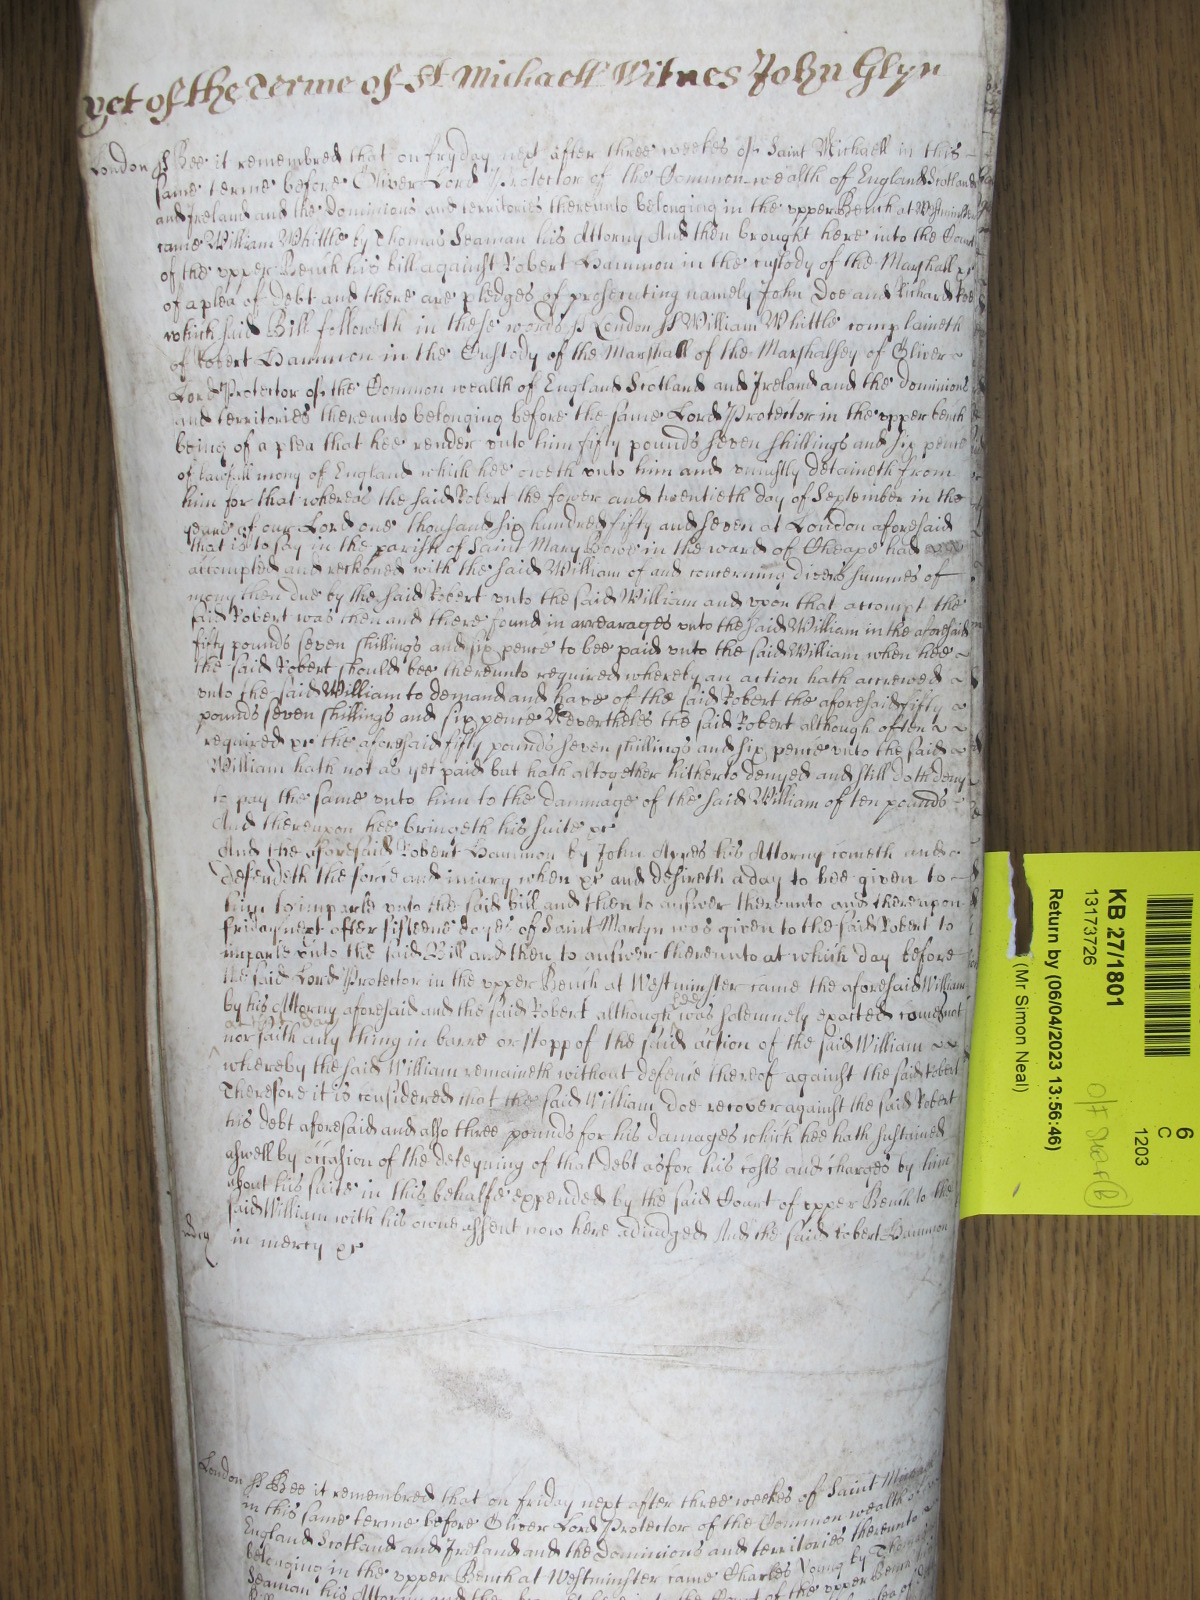 yet of the Terme of St Michaell Witnes John Glyn
London ss Bee it remembred that on fryday next after three weekes of Saint Michaell in this
same terme before Oliver Lord Protector of the Common wealth of England Scotland
and Ireland and the Dominions and territories thereunto belonging in the upper Bench at Westminster
came William Whittle by Thomas Seaman his Attorny And then brought here into the Court
of the upper Bench his bill against Robert Hammon in the custody of the Marshall &c
of a plea of Debt and there are pledges of prosecuting namely John Doe and Richard Roe
which said Bill followeth in these words ss London ss William Whittle complaineth
of Robert Hammon in the Custody of the Marshall of the Marshalsey of Oliver
Lord Protector of the Common wealth of England Scotland and Ireland and the Dominions
and territories thereunto belonging before the same Lord Protector in the upper bench
being of a plea that hee render unto him fifty pounds seven shillings and six pence
of lawfull mony of England which hee oweth unto him and uniustly detaineth from
him for that whereas the said Robert the fower and twentieth day of September in the
yeare of our Lord one thousand six hundred fifty and seven at London aforesaid
that is to say in the parish of Saint Mary Bowe in the ward of Cheape had
accompted and reckoned with the said William of and concerning divers summes of
mony then due by the said Robert unto the said William and upon that accompt the
said Robert was then and there found in arrearages unto the said William in the aforesaid
fifty pounds seven shillings and six pence to bee paid unto the said William when hee
the said Robert should bee thereunto required whereby an action hath accrewed
unto the said William to demand and have of the said Robert the aforesaid fifty
pounds seven shillings and six pence Nevertheles the said Robert although often
required &c the aforesaid fifty pounds seven shillings and six pence unto the said
William hath not as yet paid but hath altogether hitherto denyed and still doth deny
to pay the same unto him to the dammage of the said William of ten pounds
And thereupon hee bringeth his suite &c
And the aforesaid Robert Hammon by John Ayres his Attorny cometh and
defendeth the force and iniury when &c and desireth a day to bee given to
him to imparle unto the said bill and then to answer thereunto and thereupon
friday next after fifteene dayes of Saint Martyn was given to the said Robert to
imparle unto the said Bill and then to answer thereunto at which day before
the said Lord Protector in the upper Bench at Westminster came the aforesaid William
by his Attorny aforesaid and the said Robert although was solemnely exacted comes not
nor saith any thing in barre or stopp of the said action of the said William
whereby the said William remaineth without defence thereof against the said Robert
Therefore it is considered that the said William doe recover against the said Robert
his debt aforesaid and also three pounds for his damages which hee hath sustained
aswell by occasion of the deteyning of that debt as for his costs and charges by him
about his suite in this behalfe expended by the said Court of upper Bench to the
said William with his owne assent now here adiudged And the said Robert Hammon
in mercy &c
London ss Bee it remembred that on friday next after three weekes of Saint Michaell
in this same terme before Oliver Lord Protector of the Common wealth of
England Scotland and Ireland and the Dominions and territories thereunto
belonging in the upper Bench at Westminster came Charles Young by Thomas
Seaman his Attorny and the Court of the upper Bench
KB 27/1801
13173726
Return by (06/04/2023 13:56:46)
(Mr Simon Neal)
6
C
1203